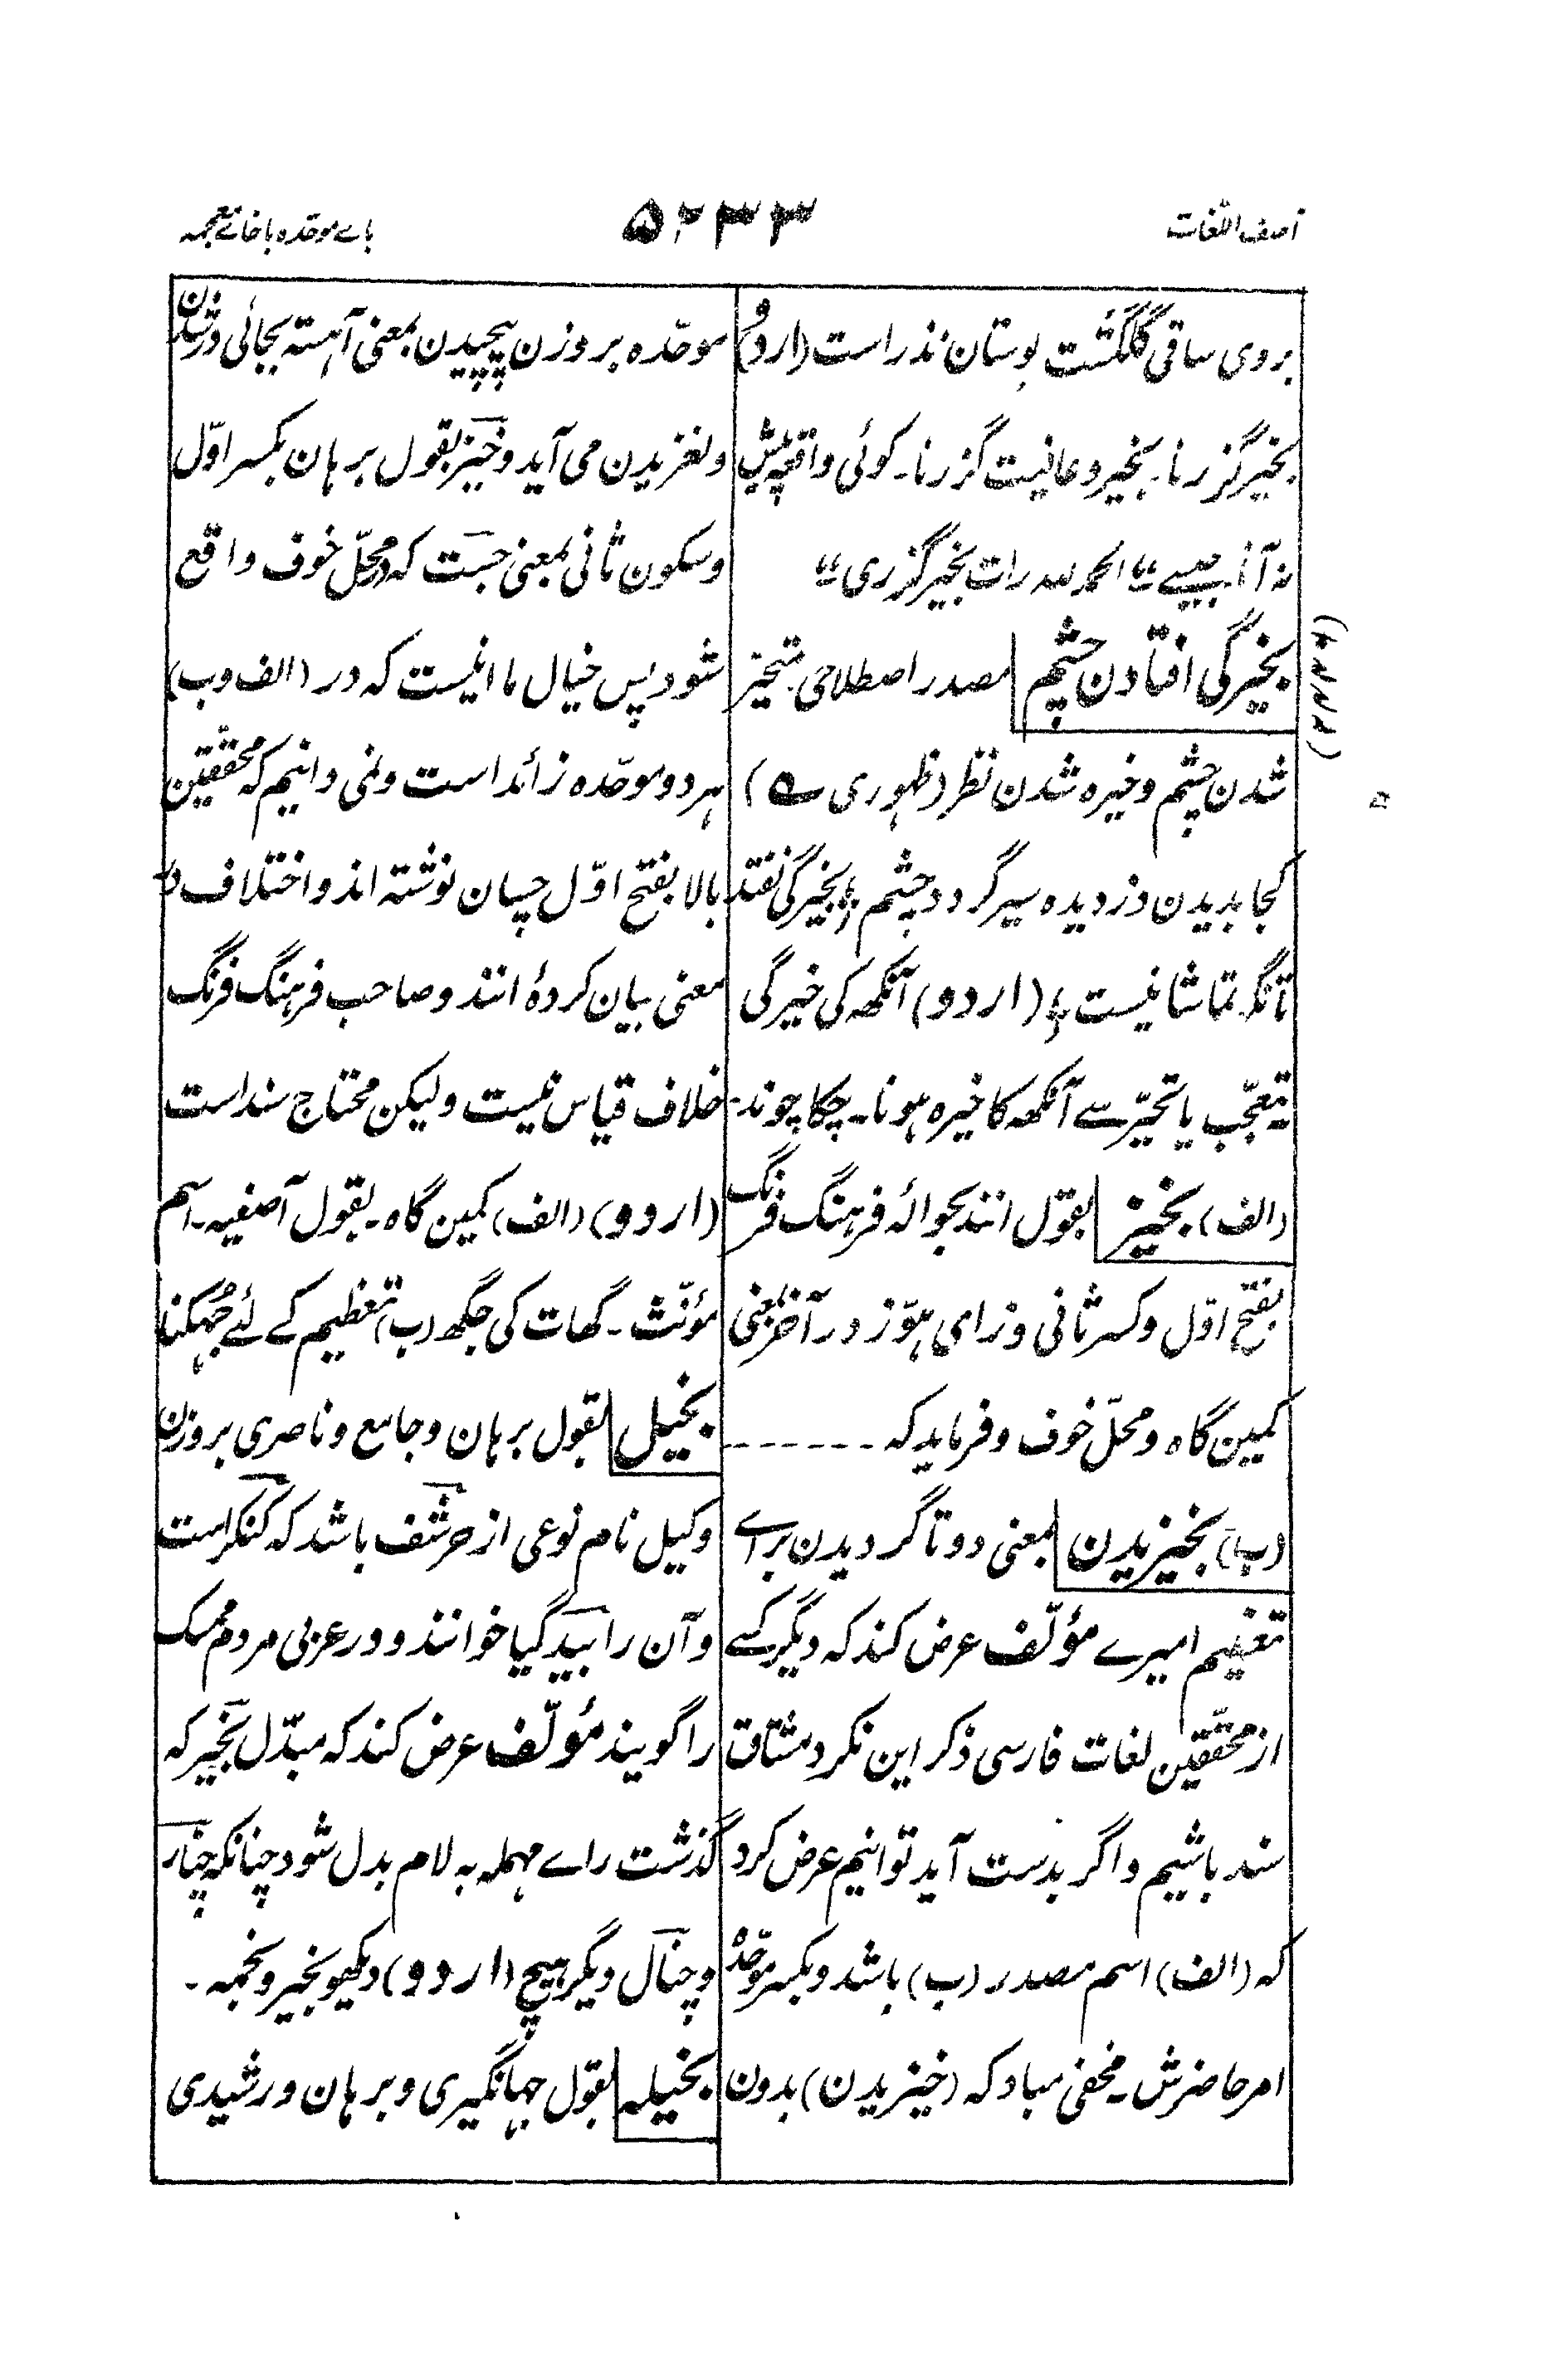 آصف اللغات
۵۲۳۳
باے موحّدہ با خائے معجمہ
بروی ساقی گلگشت بوستان نذر است (اردو)
بخیر گزرنا۔ بخیر و عافیت گزرنا۔ کوئی واقعہ پیش
نہ آنا۔ جیسے " الحمد للہ رات بخیر گزری "
بخیرگی افتادن چشم مصدر اصطلاحی۔ متحیّر
شدن چشم و خیرہ شدن نظر (ظہوری ؎)
کجا بدیدن دزدیدہ سیر گردد چشم ؛ بخیرگی نفتد
تانگہ تماشا نیست ؛ (اردو) آنکھ کی خیرگی
تعجّب یا تحیّر سے آنکھ کا خیرہ ہونا۔ چکا چوند۔
(الف) بخیز بقول انند بحوالہ فرہنگ فرنگ
بفتح اوّل و کسر ثانی و زای ہوّز در آخر بمعنی
کمین گاہ و محلّ خوف و فرماید کہ - - - - - - -
(ب) بخیزیدن بمعنی دوتا گردیدن براے
تعظیم امیرے مؤلّف عرض کند کہ دیگر کسے
از محقّقین لغات فارسی ذکر این نکرد مشتاق
سند باشیم و اگر بدست آید توانیم عرض کرد
کہ (الف) اسم مصدر (ب) باشد و بکسر موحّدہ
امر حاضرش۔ مخفی مباد کہ (خیزیدن) بدون
موحّدہ بر وزن پیچیدن بمعنی آہستہ بجائی در شدن
و لغزیدن می آید و خیز بقول برہان بکسر اوّل
و سکون ثانی بمعنی جست کہ در محلّ خوف واقع
شود پس خیال ما اینست کہ در (الف و ب)
ہر دو موحّدہ زائد است و نمی دانیم کہ محقّقین
بالا بفتح اوّل چسان نوشتہ اند و اختلاف در
معنی بیان کردۂ انند و صاحب فرہنگ فرنگ
خلاف قیاس نیست ولیکن محتاج سند است
(اردو) (الف) کمین گاہ۔ بقول آصفیہ۔ اسم
مؤنّث۔ گھات کی جگھ (ب) تعظیم کے لئے جُھکنا
بخیل بقول برہان و جامع و ناصری بر وزن
وکیل نام نوعی از حرشف باشد کہ کنگر است
و آن را بیدگیا خوانند و در عربی مردم ممسک
را گویند مؤلّف عرض کند کہ مبدّل بخیر کہ
گذشت راے مہملہ بہ لام بدل شود چنانکہ چنار
و چنال دیگر ہیچ (اردو) دیکھو بخیر و نجمہ۔
بخیلہ بقول جہانگیری و برہان و رشیدی